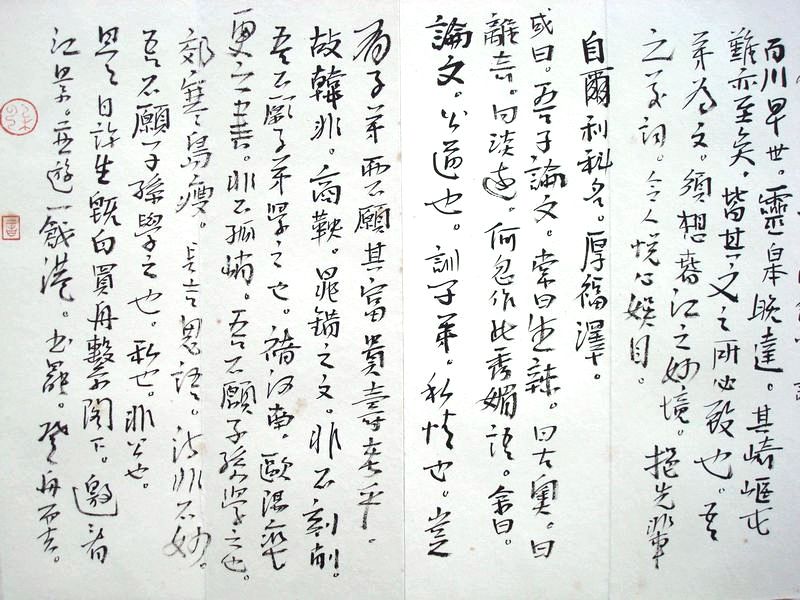 百川早世。靈皋晚達。其崎嶇屯
難亦至矣。皆其文之所必致也。吾
弟為文。須想春江之妙境。挹先輩
之美詞。令人悅心娛目。
自爾利科名。厚福澤。
或曰。吾子論文。常曰生辣。曰古奧。曰
離奇。曰淡遠。何忽作此秀媚語。余曰。
論文。公道也。訓子弟。私情也。豈
有子弟而不願其富貴壽考乎。
故韓非。商鞅。晁錯之文。非不刻削。
吾不願子弟學之也。褚河南。歐陽率
更之書。非不孤峭。吾不願子孫學之也。
郊寒島瘦。長吉鬼語。詩非不妙。
吾不願子孫學之也。私也。非公也。
是日許生既白買舟繫閣下。邀看
江景。並遊一戧港。書罷。登舟而去。